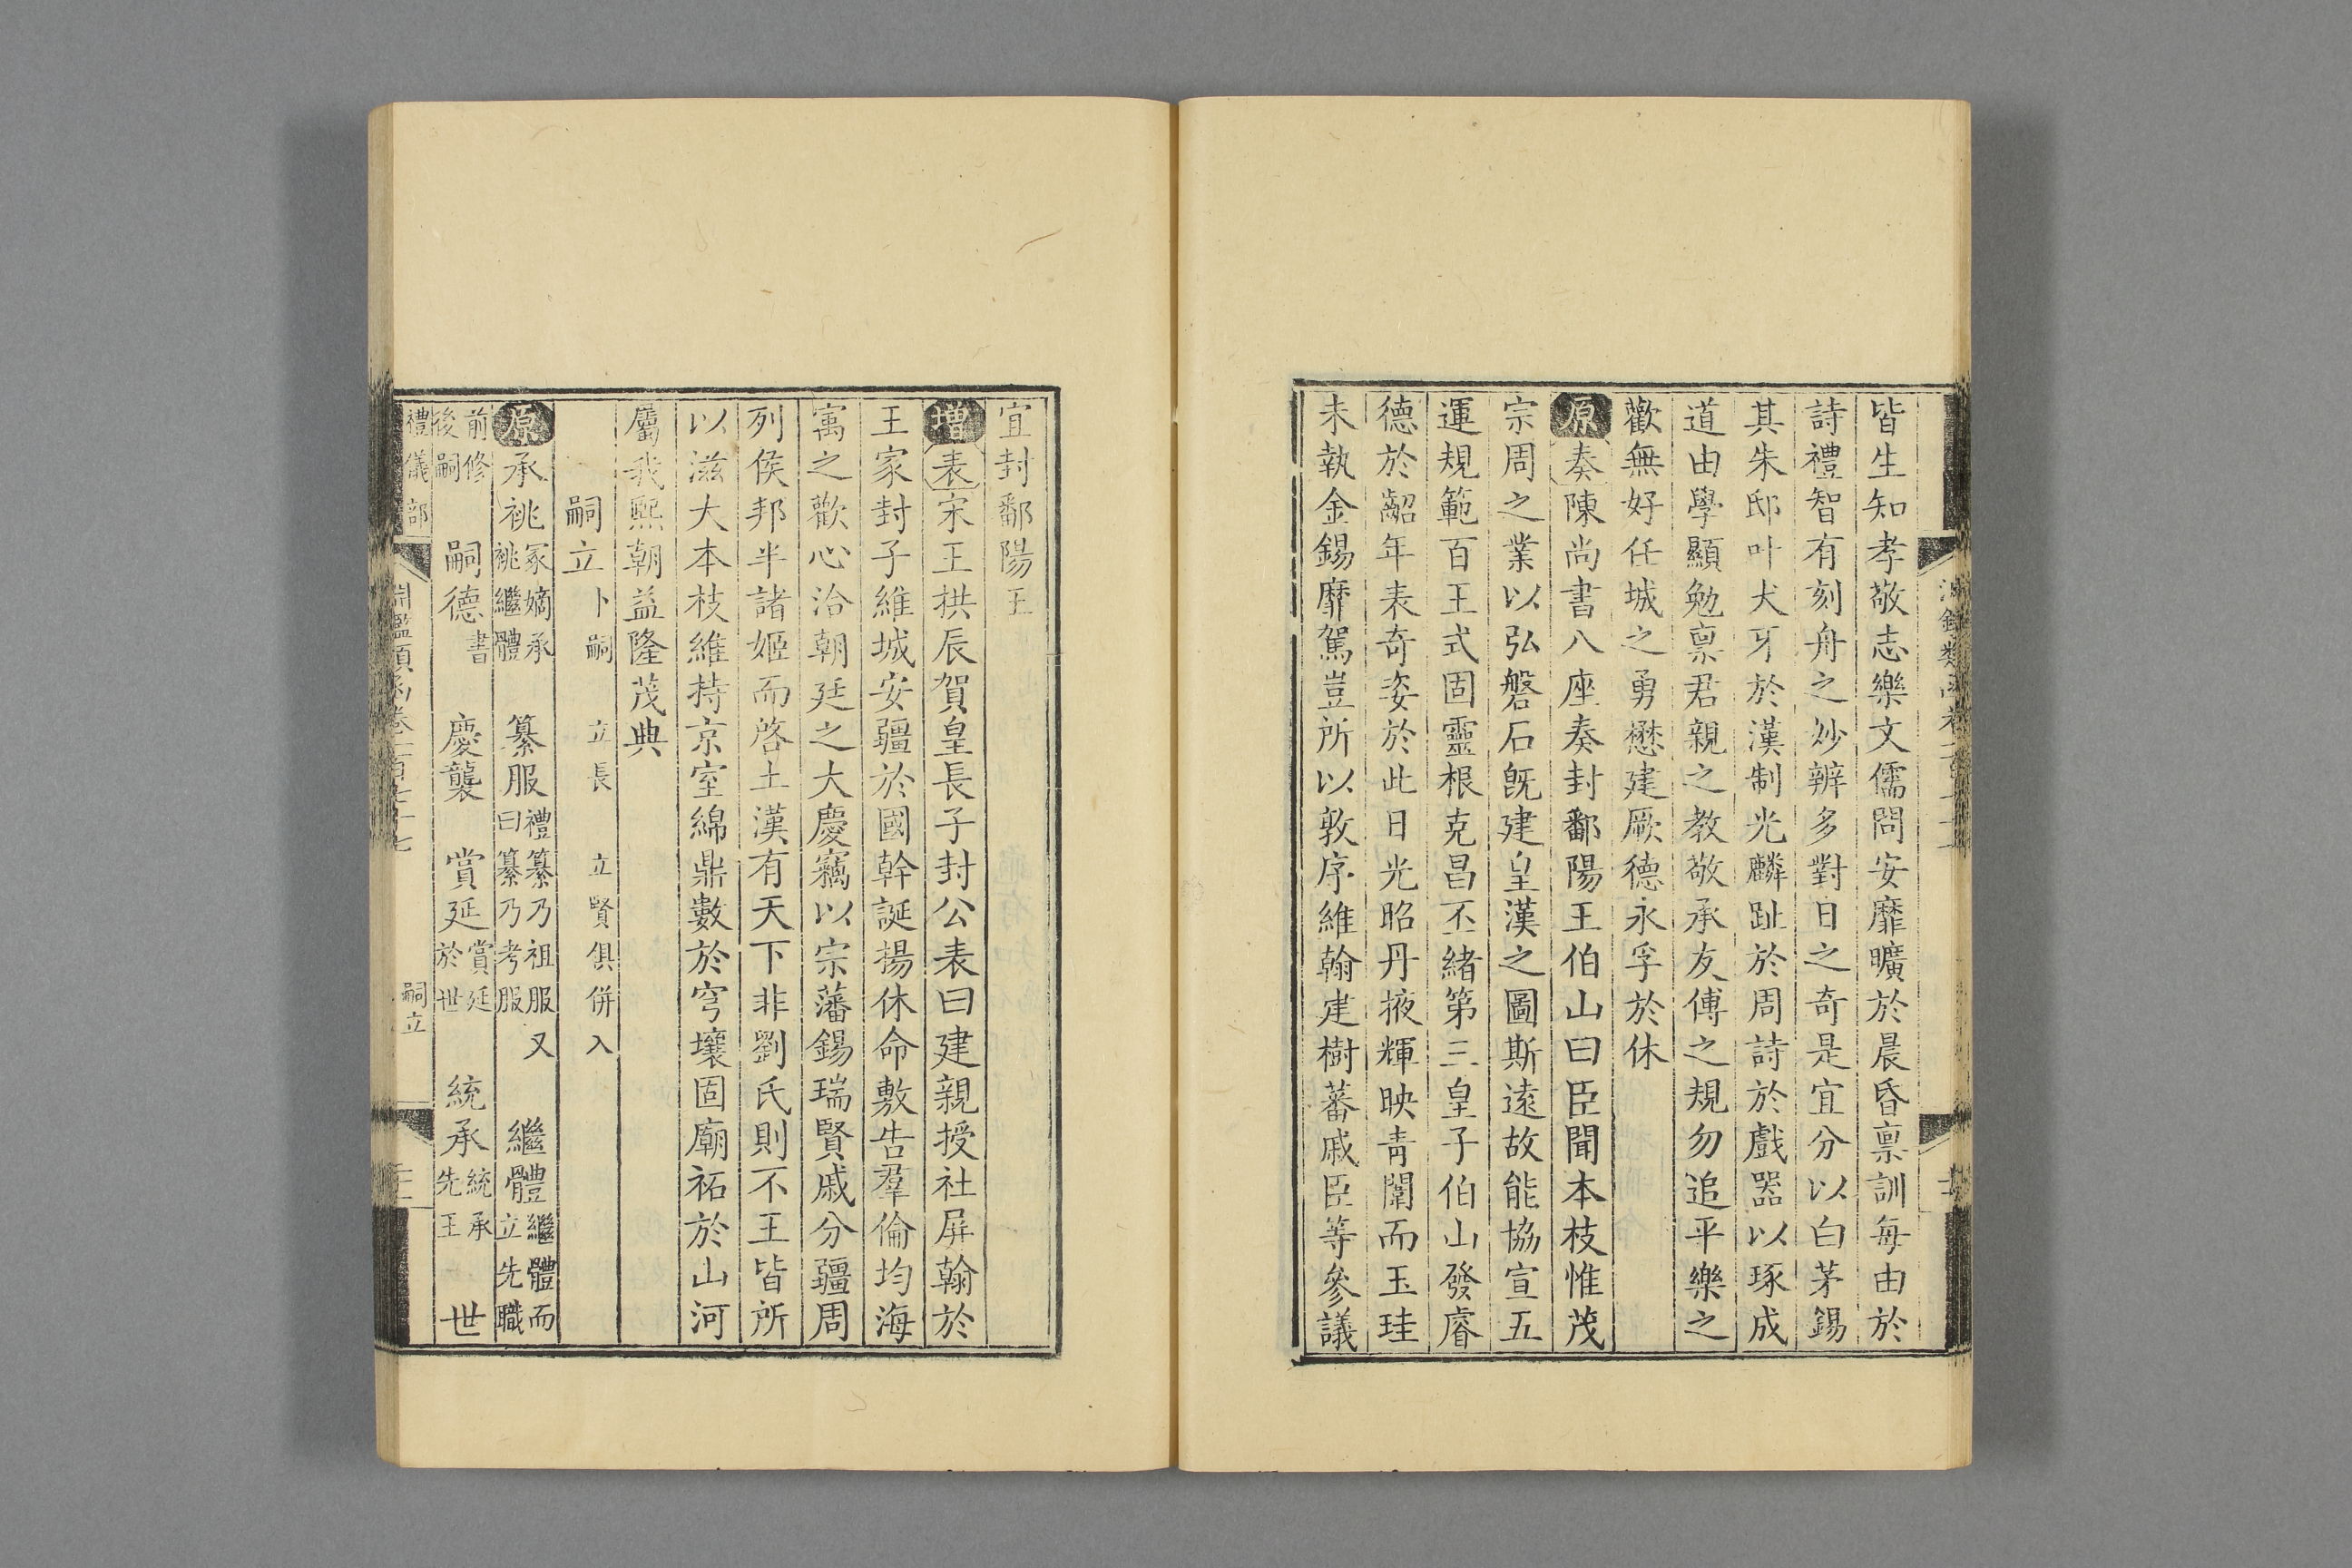 皆生知孝敬志樂文儒問安靡曠於晨昏禀訓每由於
詩禮智有刻舟之妙辨多對日之奇是宜分以白茅錫
其朱邸叶犬牙於漢制光麟趾於周詩於戲器以琢成
道由學顯勉禀君親之教敬承友傅之規勿追平樂之
歡無好任城之勇懋建厥德永孚於休
原奏陳尚書八座奏封鄱陽王伯山曰臣聞本枝惟茂
宗周之業以弘磐石旣建皇漢之圖斯遠故能協宣五
運規範百王式固靈根克昌丕緒第三皇子伯山發睿
德於齠年表奇姿於此日光昭丹掖輝映青闈而玉珪
未執金錫靡駕豈所以敦序維翰建樹蕃戚臣等參議
宜封鄱陽王
增表宋王拱辰賀皇長子封公表曰建親授社屏翰於
王家封子維城安疆於國幹誕揚休命敷告羣倫均海
㝢之歡心洽朝廷之大慶竊以宗藩錫瑞賢戚分疆周
列侯邦半諸姬而啓土漢有天下非劉氏則不王皆所
以滋大本枝維持京室綿鼎數於穹壤固廟祏於山河
屬我熙朝益隆茂典
嗣立卜嗣 立長 立賢俱併入
原承祧冢嫡承祧繼體 纂服禮纂乃祖服又曰纂乃考服 繼體繼體而立先職
前修後嗣 嗣德書 慶襲 賞延賞延於世 統承統承先王 世
禮儀部 淵鑑類函卷一百七十七 嗣立